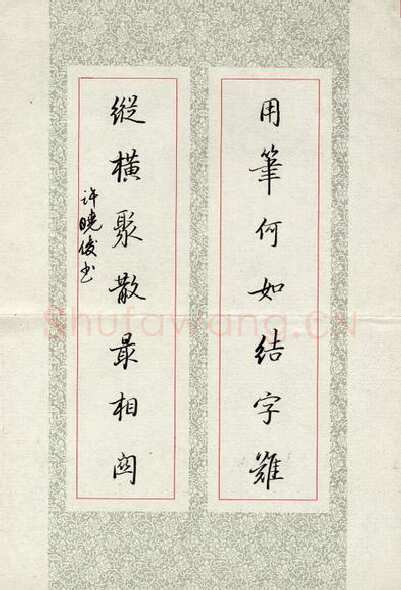 用筆何如結字難
縱橫聚散最相関
许曉俊书
Shufawang.cn